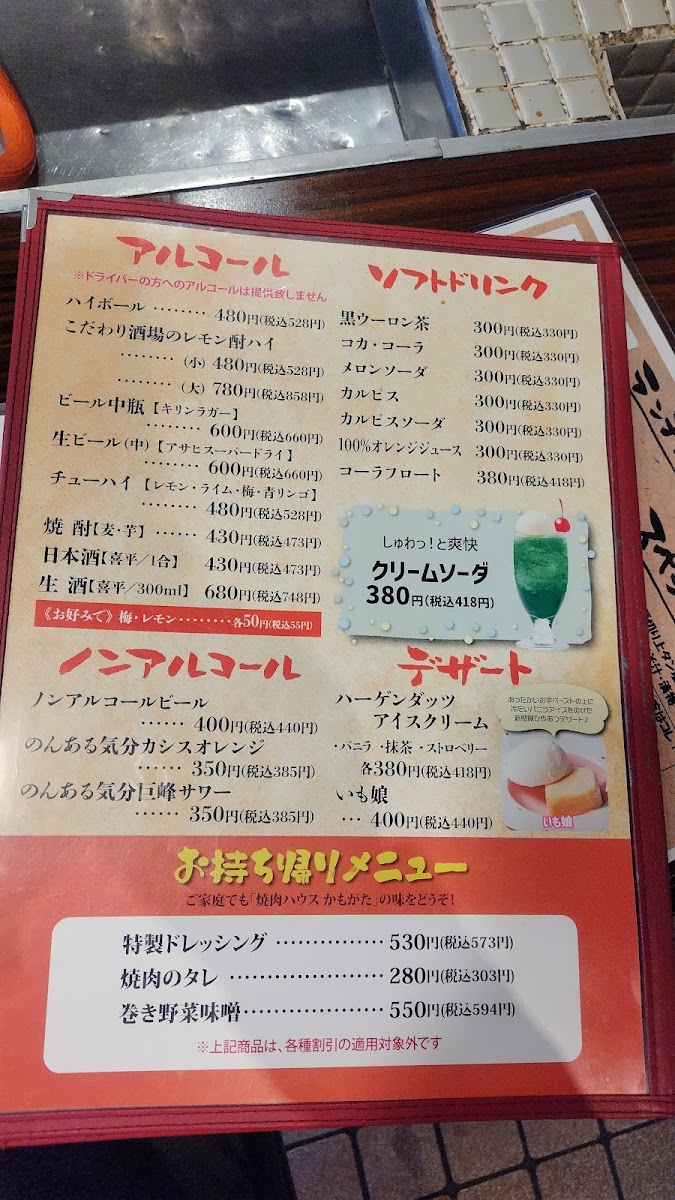 アルコール
※ドライバーの方へのアルコールは提供致しません
ハイボール ‥‥‥‥ 480円(税込528円)
こだわり酒場のレモン酎ハイ
‥‥‥‥ (小) 480円(税込528円)
‥‥‥‥ (大) 780円(税込858円)
ビール中瓶【キリンラガー】
‥‥‥‥ 600円(税込660円)
生ビール(中)【アサヒスーパードライ】
‥‥‥‥ 600円(税込660円)
チューハイ【レモン・ライム・梅・青リンゴ】
‥‥‥‥ 480円(税込528円)
焼 酎【麦・芋】‥‥‥ 430円(税込473円)
日本酒【喜平/1合】 430円(税込473円)
生 酒【喜平/300ml】 680円(税込748円)
《お好みで》梅・レモン‥‥‥‥各50円(税込55円)
ソフトドリンク
黒ウーロン茶 300円(税込330円)
コカ・コーラ 300円(税込330円)
メロンソーダ 300円(税込330円)
カルピス 300円(税込330円)
カルピスソーダ 300円(税込330円)
100%オレンジジュース 300円(税込330円)
コーラフロート 380円(税込418円)
しゅわっ!と爽快
クリームソーダ
380円(税込418円)
ノンアルコール
ノンアルコールビール
‥‥‥ 400円(税込440円)
のんある気分カシスオレンジ
‥‥‥ 350円(税込385円)
のんある気分巨峰サワー
‥‥‥ 350円(税込385円)
デザート
ハーゲンダッツ
アイスクリーム
・バニラ ・抹茶 ・ストロベリー
各380円(税込418円)
いも娘
‥‥ 400円(税込440円)
あったかいお芋ペーストの上に
冷たいバニラアイスをのせた
新感覚ひやあつデザート♪
いも娘
お持ち帰りメニュー
ご家庭でも「焼肉ハウス かもがた」の味をどうぞ!
特製ドレッシング ‥‥‥‥‥‥ 530円(税込573円)
焼肉のタレ ‥‥‥‥‥‥‥‥ 280円(税込303円)
巻き野菜味噌‥‥‥‥‥‥‥ 550円(税込594円)
※上記商品は、各種割引の適用対象外です